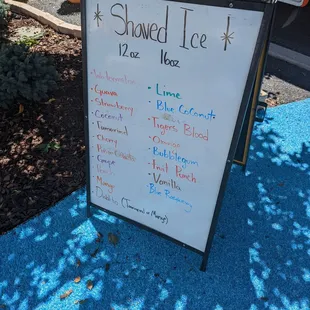 Shaved Ice
12oz 16oz
Guava
Strawberry
Coconut
Tamarind
Cherry
Grape
Mango
Diablito (Tamarind + Mango)
Lime
Blue Coconut
Tigers Blood
Orange
Bubblegum
Peach
Vanilla
Blue Raspberry